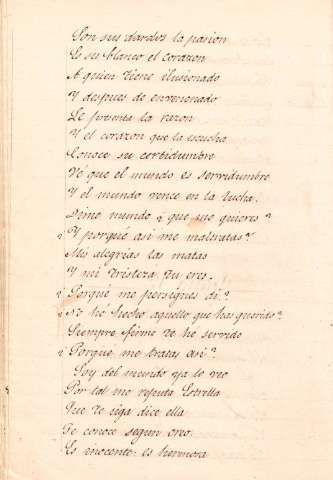 Son sus dardos la pasion
Es su blanco el corazon
A quien tiene ilusionado
Y despues de envenenado
Le presenta la razon
Y el corazon que la escucha
Conoce su certidumbre
Vé que el mundo es servidumbre
Y el mundo vence en la lucha.
Dime mundo ¿ que me quieres?
¿ Y porqué asi me maltratas?
Mis alegrias las matas
Y mi tristeza tu eres.
¿ Porqué me persigues di?
¿ No hé hecho aquello que has querido?
Siempre firme te hé servido
¿ Porque me tratas asi?
Soy del mundo ya lo veo
Por tal me reputa Estrella
Que te siga dice ella
Te conoce segun creo
Es inocente es hermosa